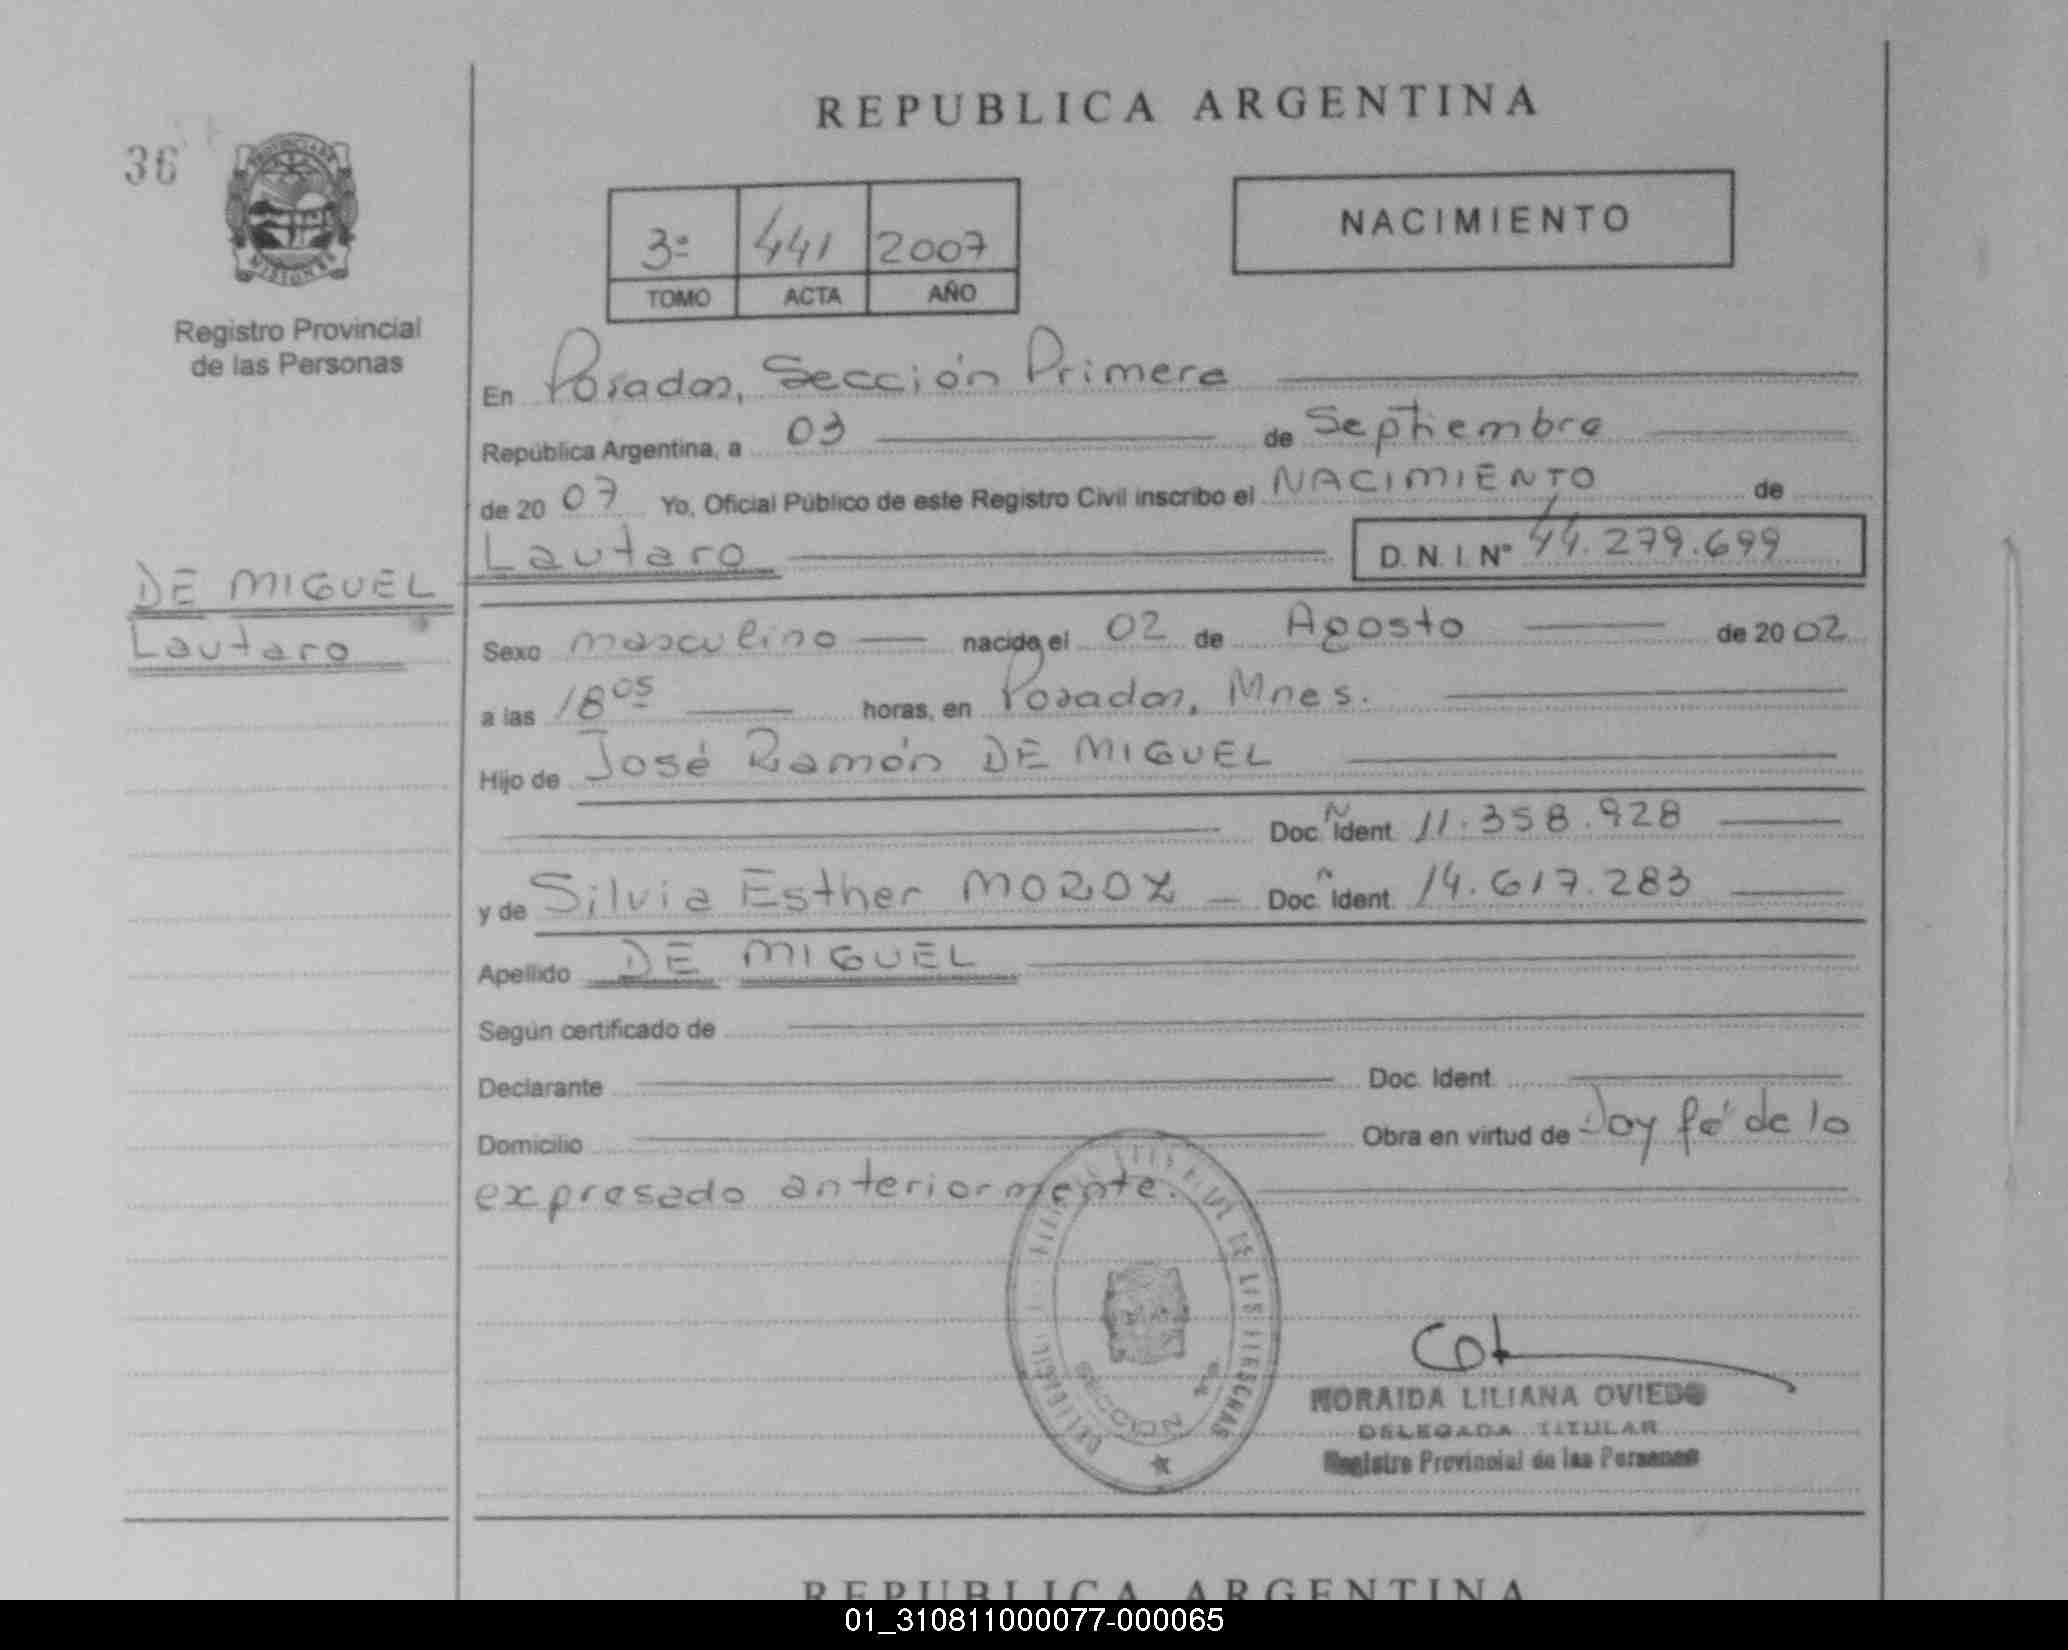 REPUBLICA ARGENTINA
36
PROVINCIA DE
MISIONES
Registro Provincial
de las Personas
NACIMIENTO
3º 441 2007
TOMO ACTA AÑO
En Posadas, Sección Primera
República Argentina, a 03 de Septiembre
de 2007 Yo, Oficial Público de este Registro Civil inscribo el NACIMIENTO de
Lautaro D.N.I. Nº 44.279.699
DE MIGUEL
Lautaro
Sexo masculino nacido el 02 de Agosto de 2002
a las 18 05 horas, en Posadas, Mnes.
Hijo de José Ramón DE MIGUEL
Doc. Ñ Ident. 11.358.928
y de Silvia Esther MOROZ Doc. Ñ Ident. 14.617.283
Apellido DE MIGUEL
Según certificado de
Declarante Doc. Ident.
Domicilio Obra en virtud de Doy fé de lo
expresado anteriormente.
SECCION
DE LAS PERSONAS
NORAIDA LILIANA OVIEDO
DELEGADA TITULAR
Registro Provincial de las Personas
REPUBLICA ARGENTINA
01_310811000077-000065